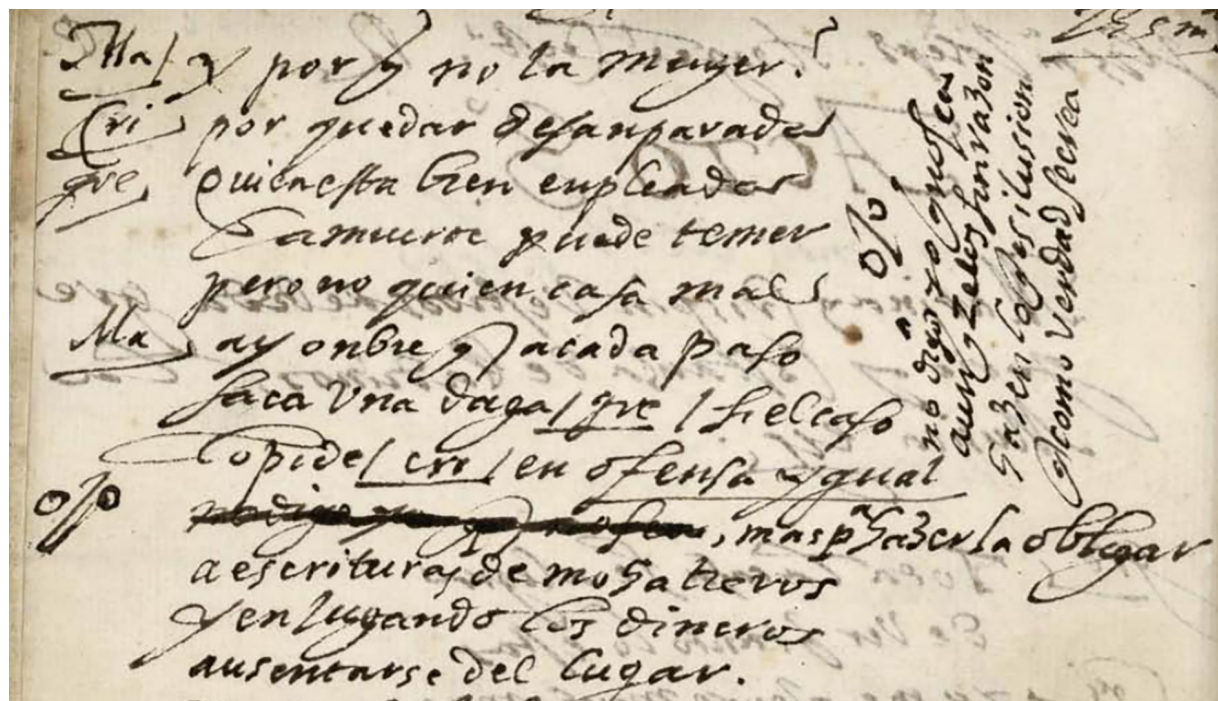 y por q no la muger?
Cri por quedar desanparada
gre quien esta bien enpleada
la muerte puede temer
pero no quien casa mal
Ma ay onbre q a cada paso
saca vna daga / gre / si el caso
lo pide / cri / en ofensa ygual
, mas pa hazerla obligar
a escrituras de mohatreros
y en jugando los dineros
ausentarse del lugar.
no digo yo q no seas
aunq zelos sin razon
hazen lo q es ilusion
como verdad se crea